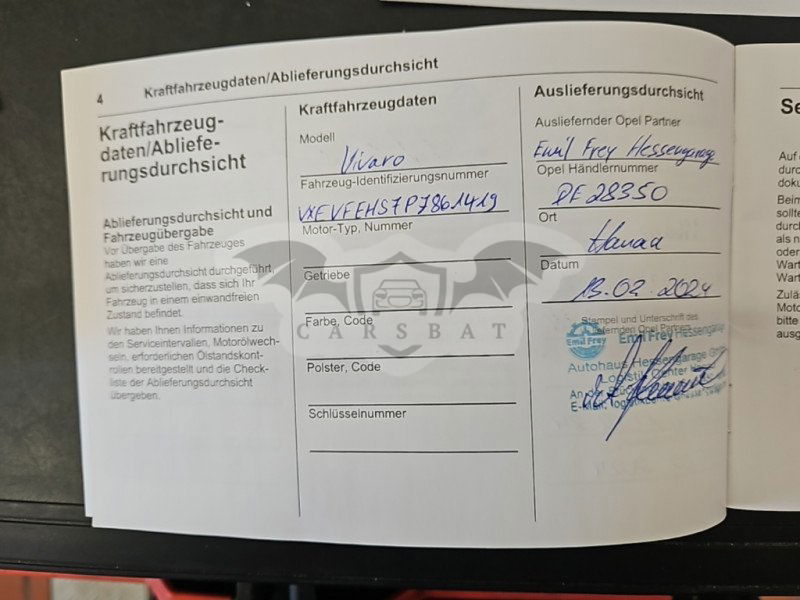 4
Kraftfahrzeugdaten/Ablieferungsdurchsicht
Kraftfahrzeug-
daten/Abliefe-
rungsdurchsicht
Ablieferungsdurchsicht und
Fahrzeugübergabe
Vor Übergabe des Fahrzeuges
haben wir eine
Ablieferungsdurchsicht durchgeführt,
um sicherzustellen, dass sich Ihr
Fahrzeug in einem einwandfreien
Zustand befindet.
Wir haben Ihnen Informationen zu
den Serviceintervallen, Motorölwech-
seln, erforderlichen Ölstandskont-
rollen bereitgestellt und die Check-
liste der Ablieferungsdurchsicht
übergeben.
Kraftfahrzeugdaten
Modell
Vivaro
Fahrzeug-Identifizierungsnummer
VXEVFEHS7P7861419
Motor-Typ, Nummer
Getriebe
Farbe, Code
Polster, Code
Schlüsselnummer
Auslieferungsdurchsicht
Ausliefernder Opel Partner
Emil Frey Hessengarage
Opel Händlernummer
DE 28350
Ort
Hanau
Datum
13.02.2024
Stempel und Unterschrift des
ausliefernden Opel Partners
Emil Frey
Emil Frey Hessengarage
Autohaus Hessengarage
Logistik Center
An der
E-Mail:
CARSBAT
Se
Auf
durc
doku
Beim
sollte
durch
als n
oder
Wart
Wart
Zulä
Moto
bitte
ausg